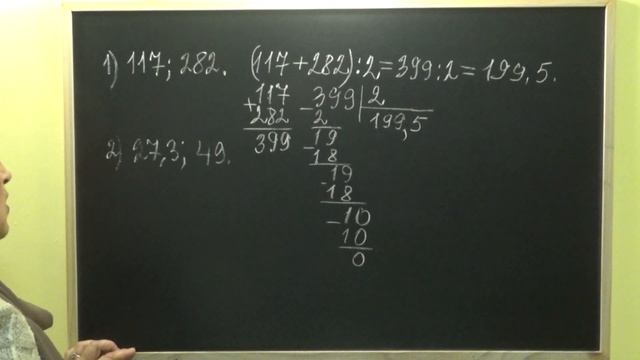 1) 117; 282. (117+282):2=399:2=199,5.
+117
282
399
-399 | 2
2 199,5
-19
18
19
-18
-10
10
0
2) 27,3; 49.